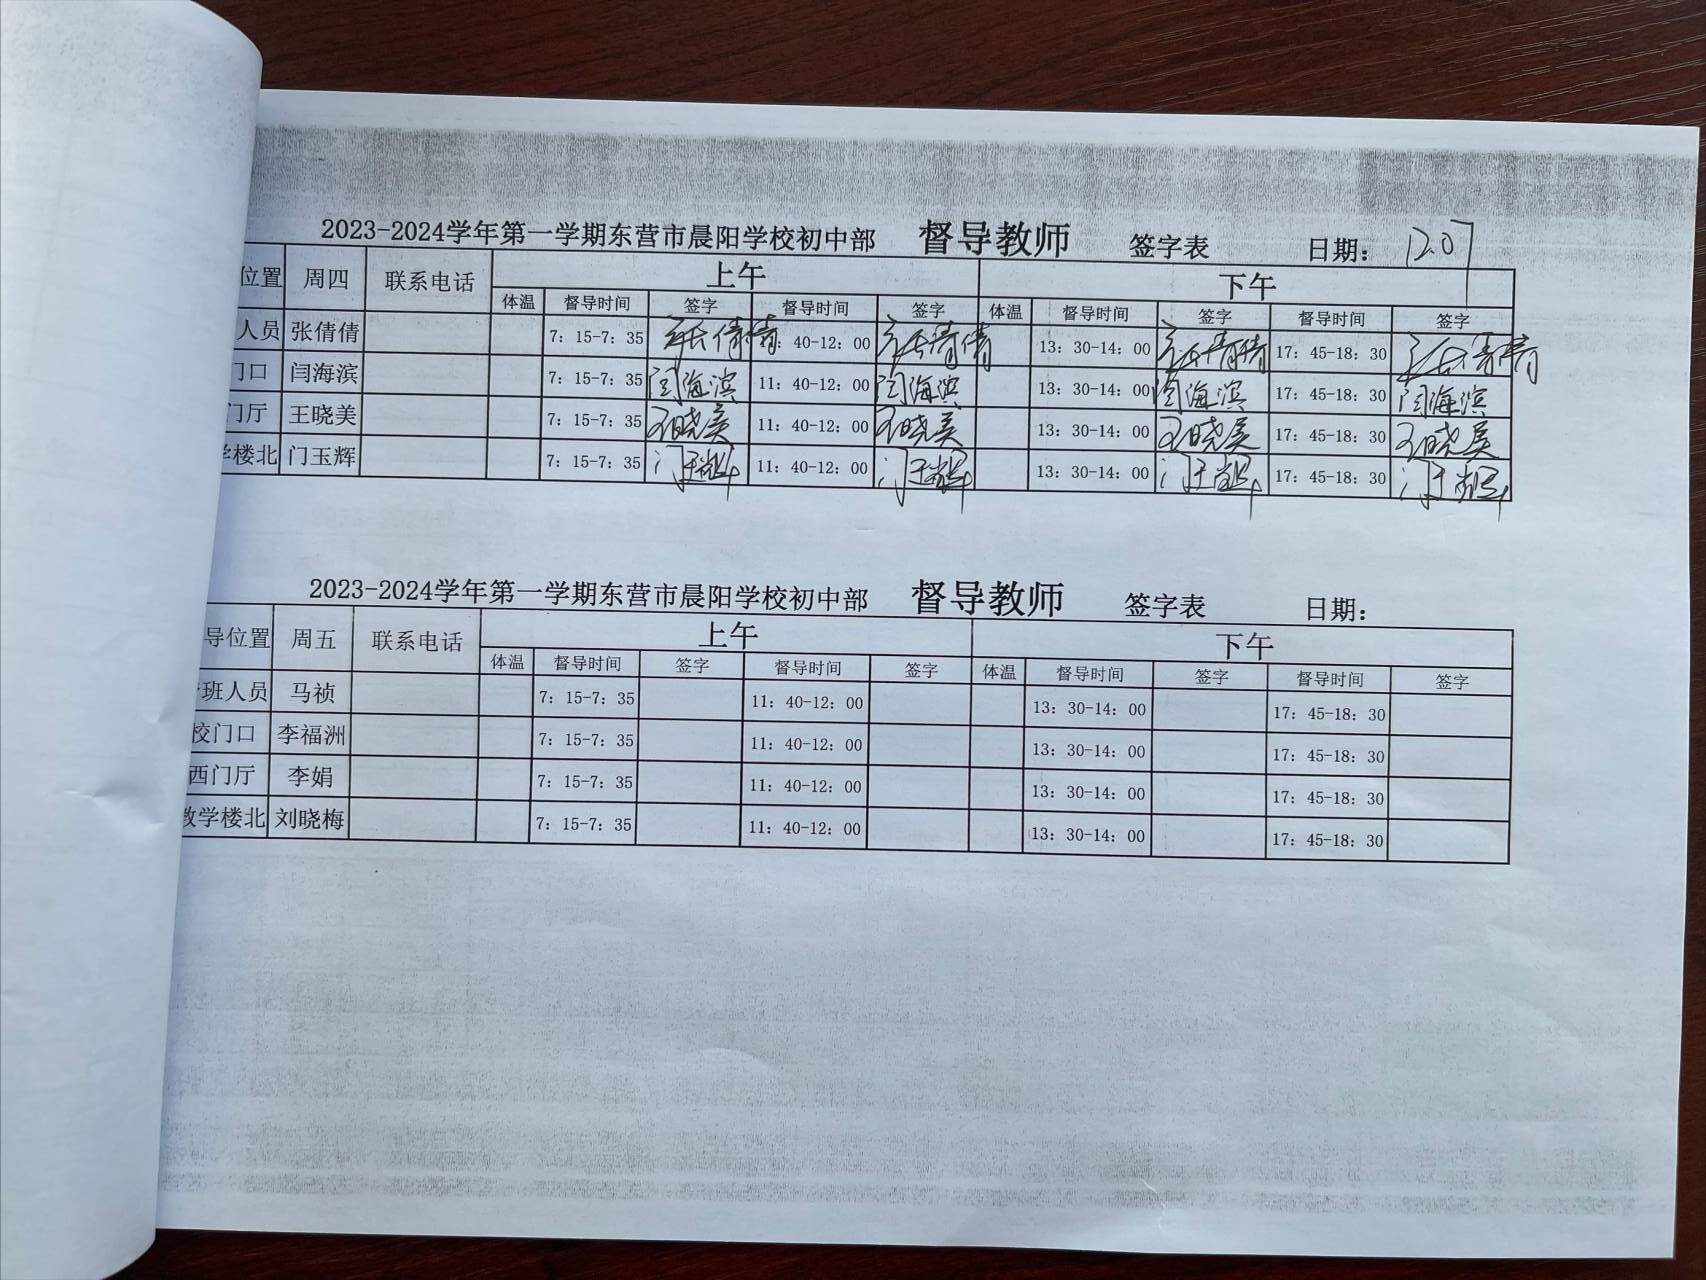 2023-2024学年第一学期东营市晨阳学校初中部 督导教师 签字表 日期: 12.07
位置 周四 联系电话 上午 下午
体温 督导时间 签字 督导时间 签字 体温 督导时间 签字 督导时间 签字
人员 张倩倩 7: 15-7: 35 张倩倩 40-12: 00 张倩倩 13: 30-14: 00 张倩倩 17: 45-18: 30 张倩倩
门口 闫海滨 7: 15-7: 35 闫海滨 11: 40-12: 00 闫海滨 13: 30-14: 00 闫海滨 17: 45-18: 30 闫海滨
门厅 王晓美 7: 15-7: 35 王晓美 11: 40-12: 00 王晓美 13: 30-14: 00 王晓美 17: 45-18: 30 王晓美
学楼北 门玉辉 7: 15-7: 35 门玉辉 11: 40-12: 00 门玉辉 13: 30-14: 00 门玉辉 17: 45-18: 30 门玉辉
2023-2024学年第一学期东营市晨阳学校初中部 督导教师 签字表 日期:
导位置 周五 联系电话 上午 下午
体温 督导时间 签字 督导时间 签字 体温 督导时间 签字 督导时间 签字
班人员 马祯 7: 15-7: 35 11: 40-12: 00 13: 30-14: 00 17: 45-18: 30
校门口 李福洲 7: 15-7: 35 11: 40-12: 00 13: 30-14: 00 17: 45-18: 30
西门厅 李娟 7: 15-7: 35 11: 40-12: 00 13: 30-14: 00 17: 45-18: 30
教学楼北 刘晓梅 7: 15-7: 35 11: 40-12: 00 13: 30-14: 00 17: 45-18: 30